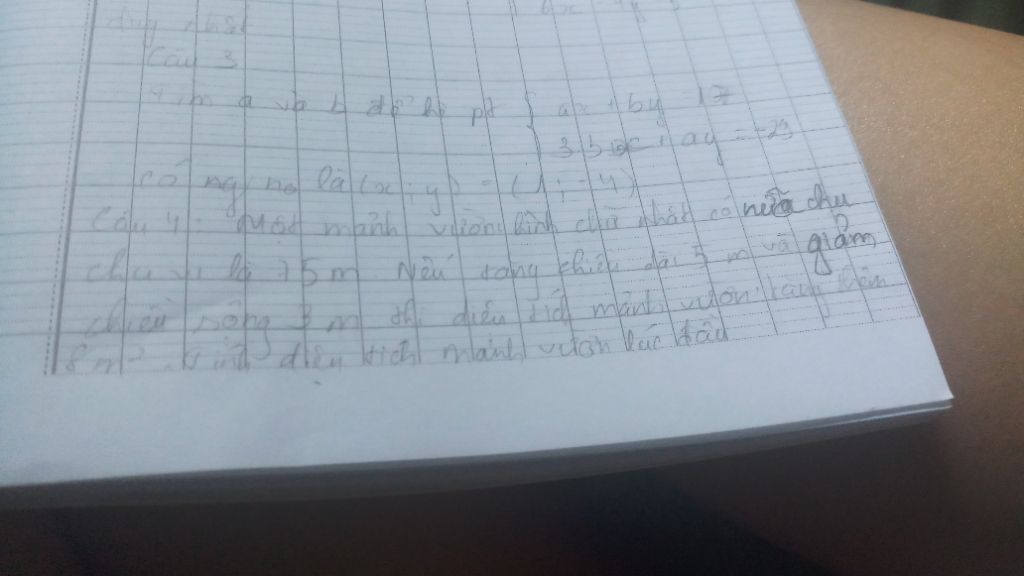 duy nhất
Câu 3
Tìm a và b để hệ pt { ax + by = 17
3bx + ay = -29
có ng no là (x; y) = (1; -4)
Câu 4: Một mảnh vườn hình chữ nhật có nửa chu
chu vi là 75m Nếu tăng chiều dài 5m và giảm
chiều rộng 3m thì diện tích mảnh vườn tăng thêm
8m². Tính diện tích mảnh vườn lúc đầu